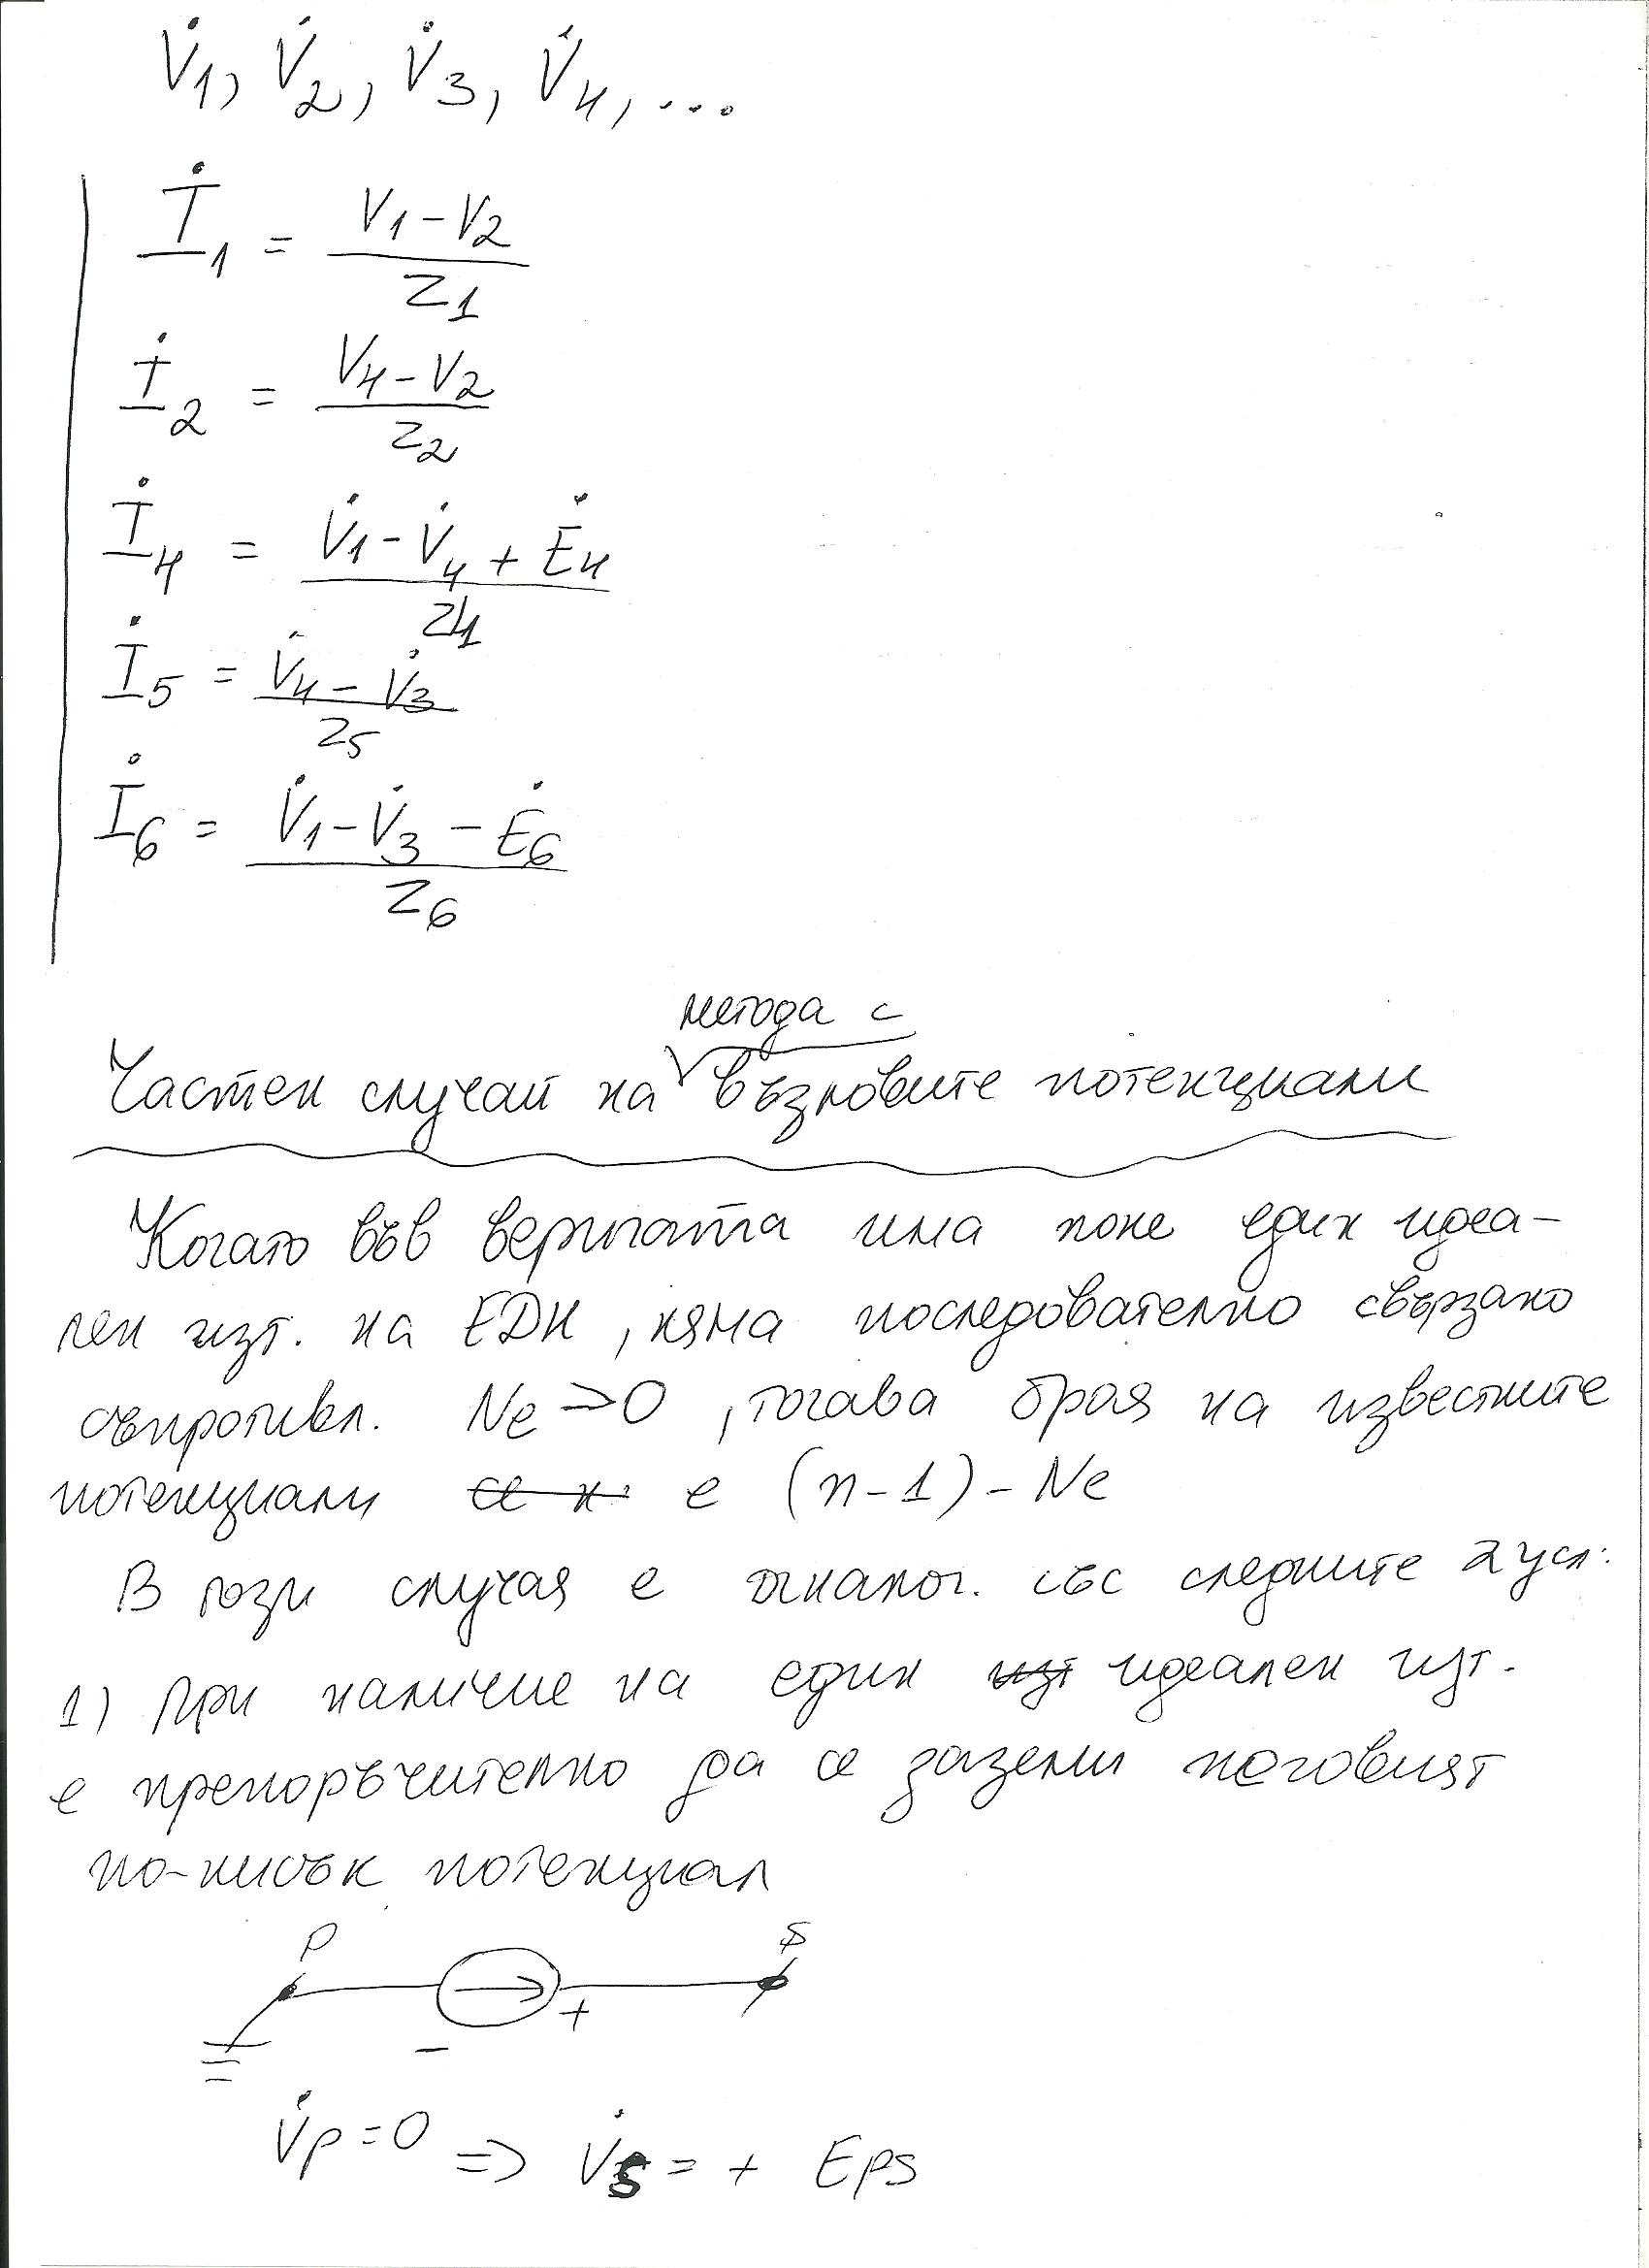 V̇1, V̇2, V̇3, V̇4, ...
İ1 = (V1 - V2) / Z1
İ2 = (V4 - V2) / Z2
İ4 = (V̇1 - V̇4 + Ė4) / Z4
İ5 = (V̇4 - V̇3) / Z5
İ6 = (V̇1 - V̇3 - Ė6) / Z6
метода с
Частен случай на възловите потенциали
Когато във веригата има поне един идеа-
лен изт. на ЕДН, няма последователно свързано
съпротивл. Ne => 0, тогава броя на известните
потенциали е (n-1) - Ne
В този случая е със следните 2 усл.
1) При наличие на един идеален изт.
е препоръчително да се заземи неговият
по-нисък потенциал
P S
+
-
V̇p = 0 => V̇s = + Eps